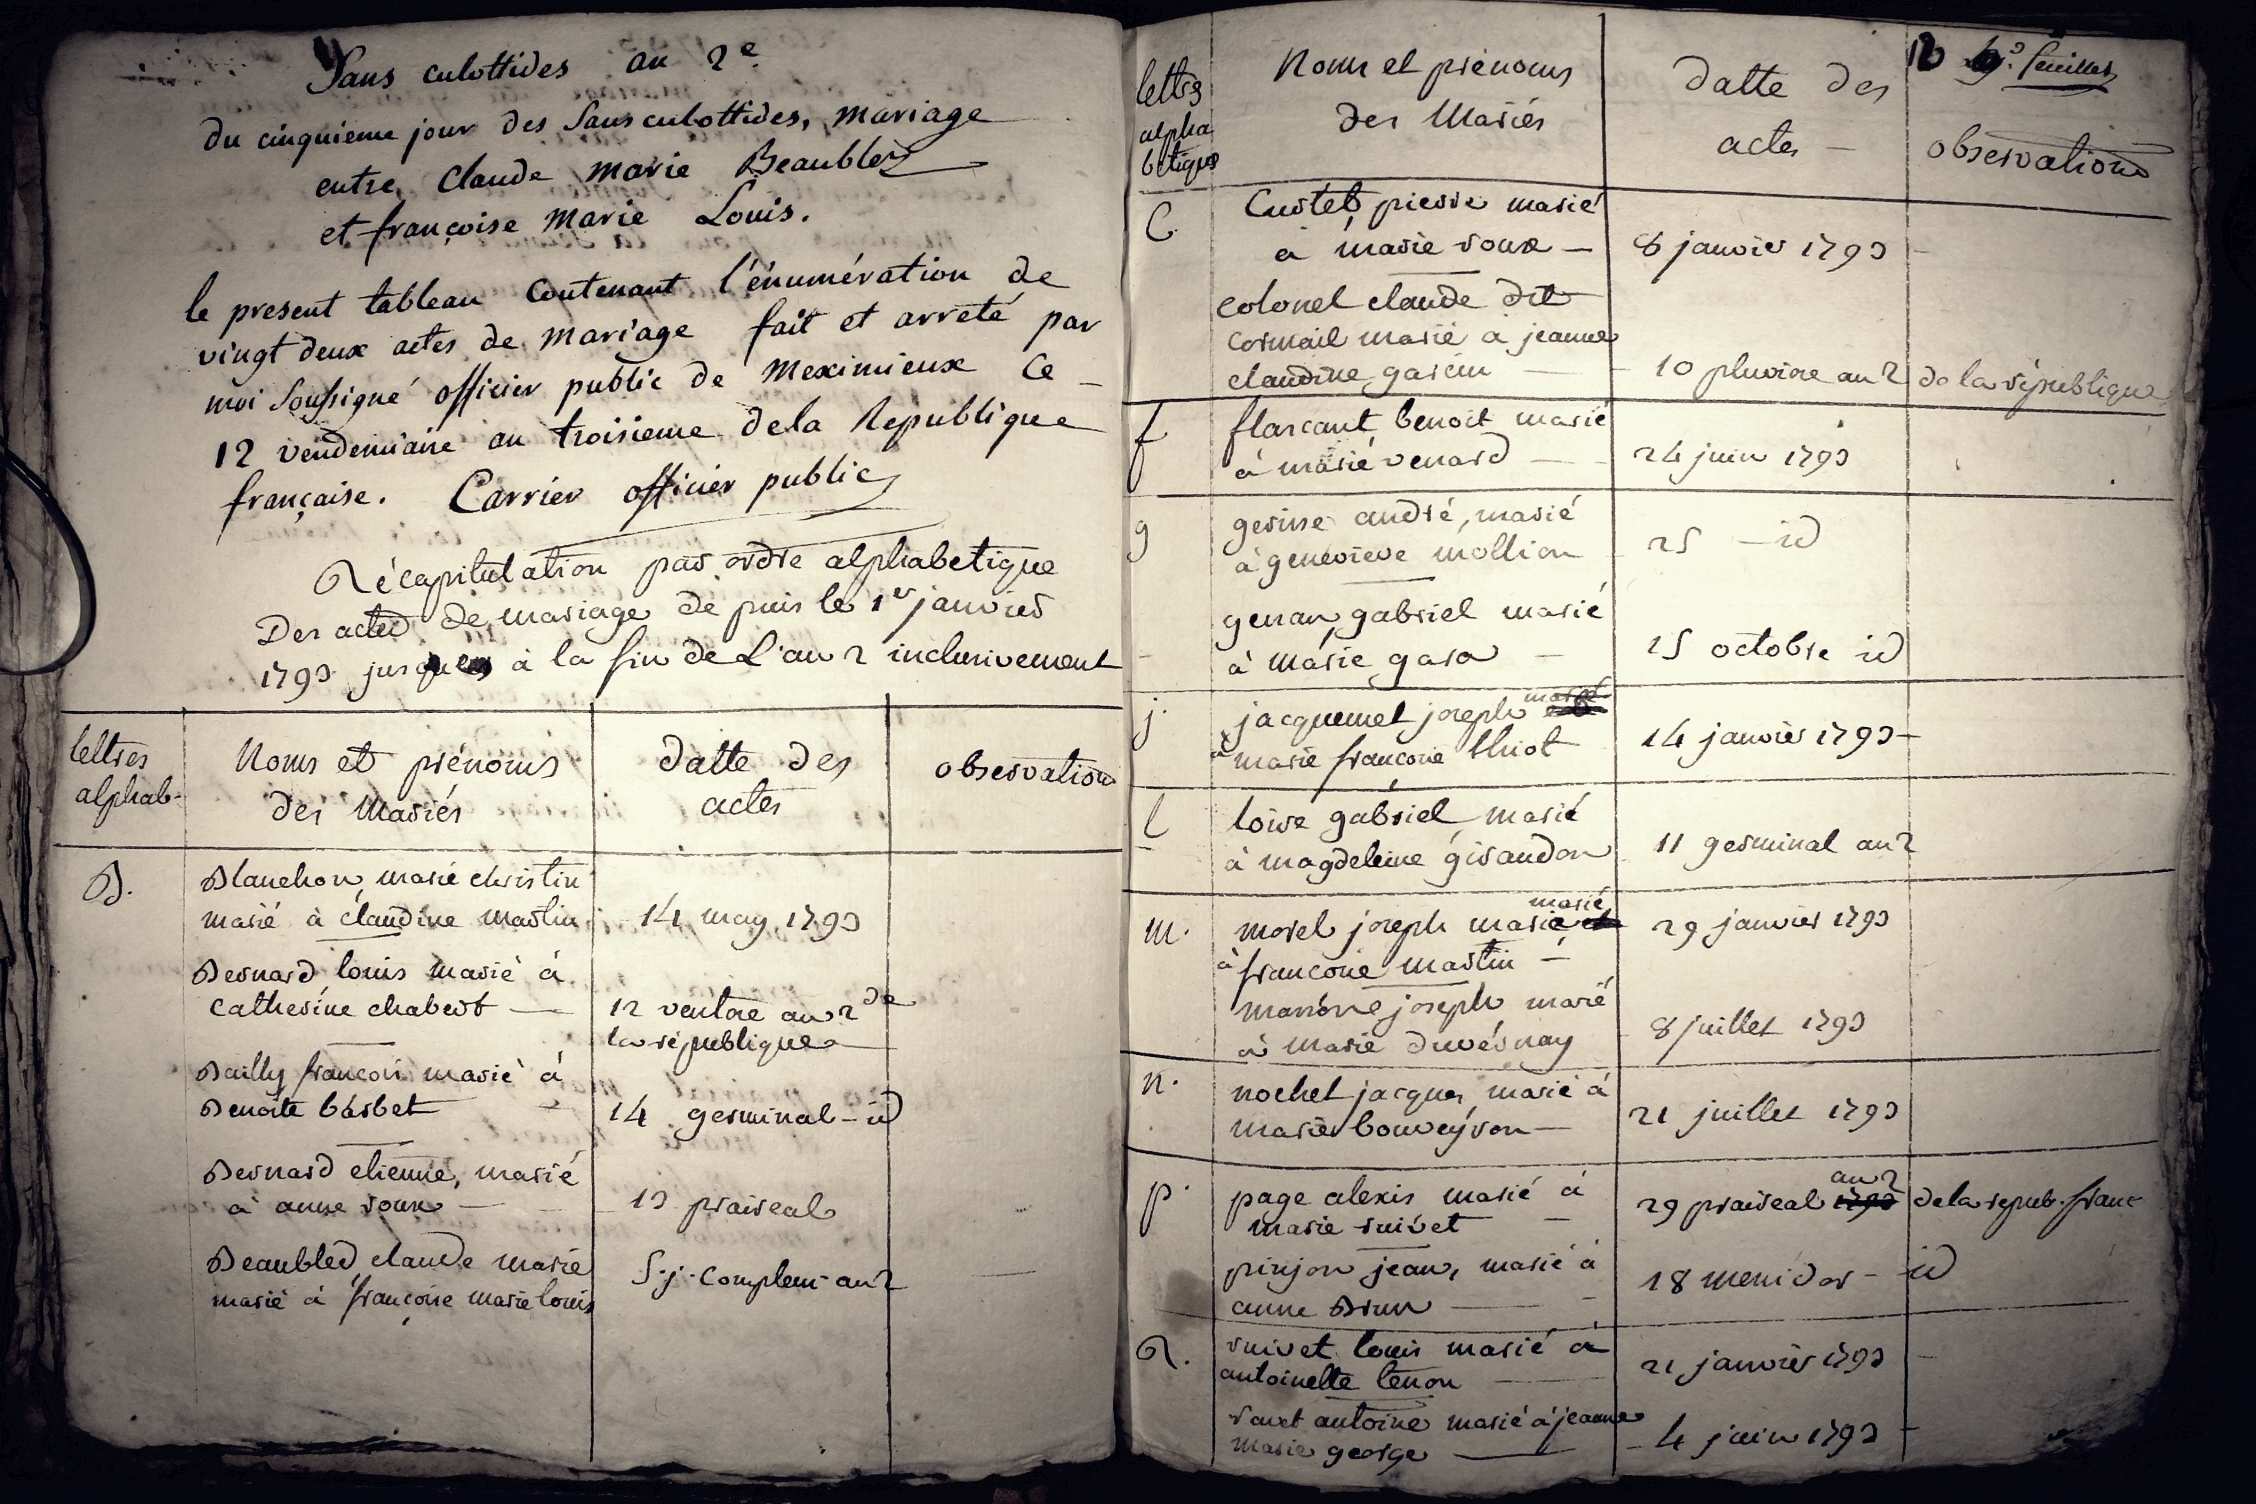 Sans culottides an 2e
du cinquieme jour des Sansculottides, mariage
entre Claude marie Beaublez
et françoise Marie Louis.
le present tableau contenant l'énumération de
vingt deux actes de mariage fait et arreté par
moi Soussigné officier public de Meximieux ce
12 vendemiaire an troisieme dela Republique
française. Carrier officier public
Récapitulation par ordre alphabetique
Des actes de mariage de puis le 1er janvier
1793 jusques à la fin de L'an 2 inclusivement
lettres
alphab.
Noms et prénoms
des Mariés
datte des
actes
observation
B.
Blanchon, marie christin
marié à claudine martin 14 may 1793
Bernard louis marié à
catherine chabert 12 ventose an 2 de
la république
Bailly francois marié à
Benoite barbet 14 germinal - id
Bernard etienne, marié
à anne roux 13 prairéal
Beaubled claude marie
marié à françoise marie louis 5. j. complem. an 2
12 feuillet
lettres
alpha
betiques
Noms et prénoms
des Mariés
datte des
actes
observations
C. Curtet, pierre marié
à marie roux 8 janvier 1793
colonel claude dit
cormail marié à jeanne
claudine garcin 10 pluviose an 2 de la république
f flarcant benoit marié
à marie venard 24 juin 1793
g gerine andré, marié
à genevieve mollion 25 id
genan, gabriel marié
à marie gara 15 octobre id
j. jacquemet joseph marié
à marie francoise thiot 14 janvier 1793
l loive gabriel marié
à magdeleine giraudon 11 germinal an 2
m. morel joseph marié 29 janvier 1793
à francoise martin
joseph marié
à marie duvérnay 8 juillet 1793
n. nochet jacques marié à
marie bouveyron 21 juillet 1793
p. page alexis marié à
marie ruivet 29 prairéal an 2 1793 dela repub. franc
pinjon jean, marié à
anne Brun 18 messidor id
R. ruivet louis marié à
antoinette tenon 21 janvier 1793
antoine marié à jeanne
marie george 4 juin 1793